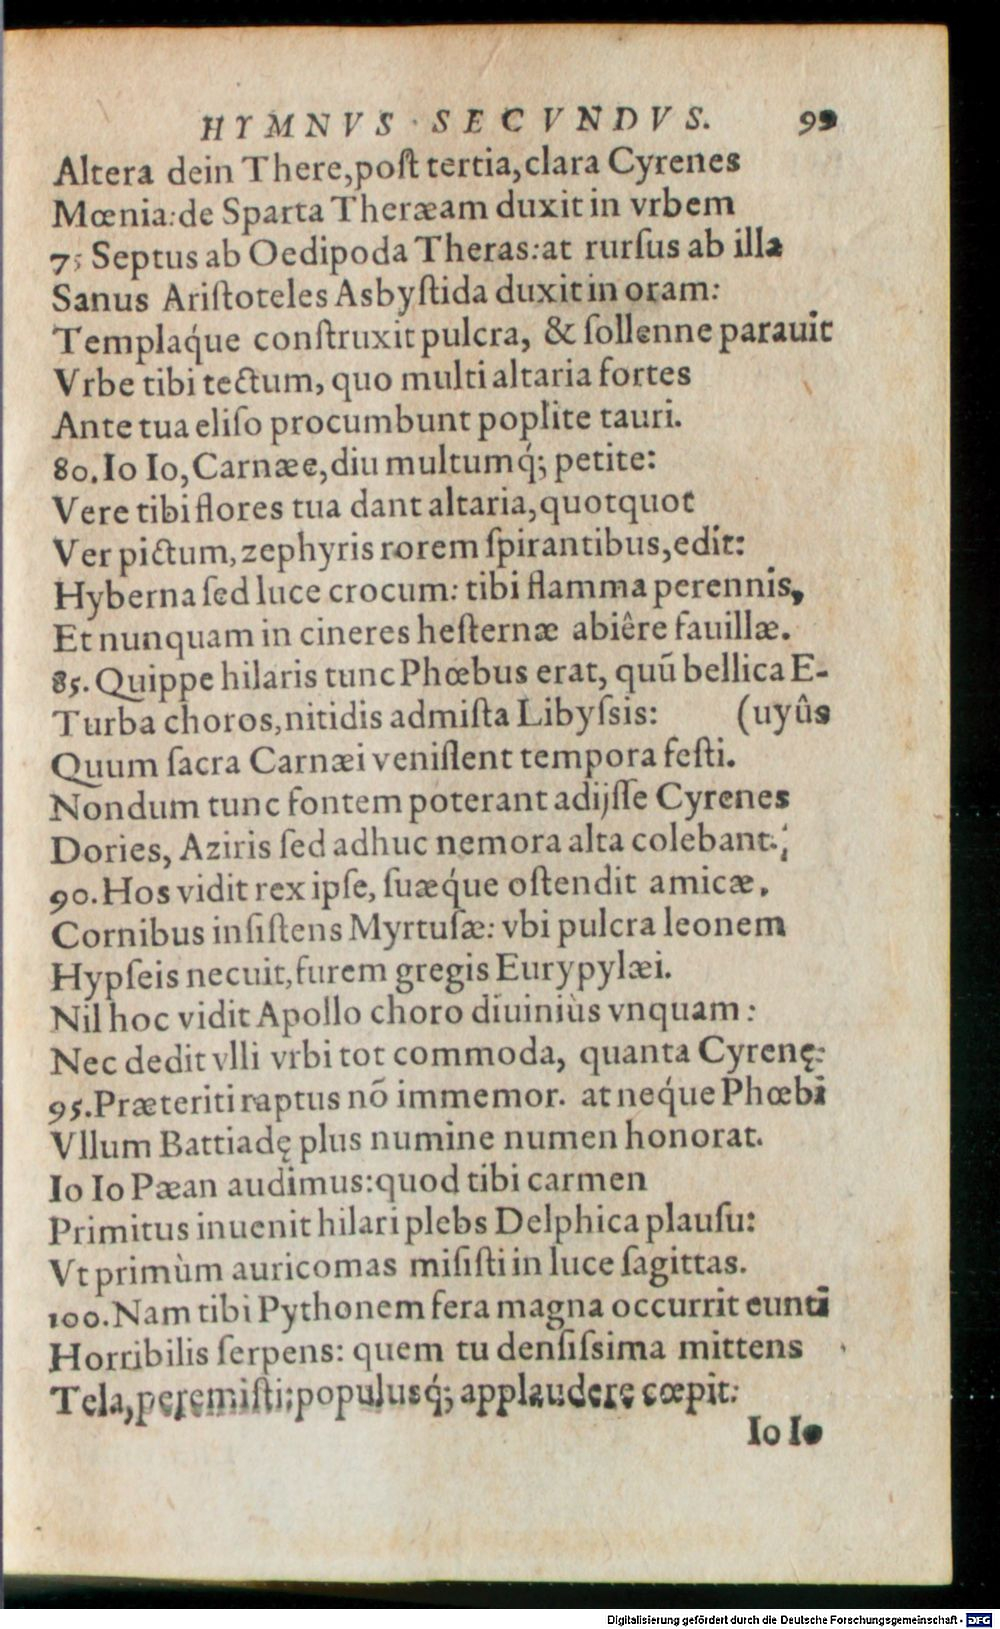 HYMNVS SECVNDVS. 99
Altera dein There, poſt tertia, clara Cyrenes
Mœnia: de Sparta Theræam duxit in vrbem
75 Septus ab Oedipoda Theras: at rurſus ab illa
Sanus Ariſtoteles Asbyſtida duxit in oram:
Templaq́ue conſtruxit pulcra, & ſollenne parauit
Vrbe tibi tectum, quo multi altaria fortes
Ante tua eliſo procumbunt poplite tauri.
80. Io Io, Carnæe, diu multumq́; petite:
Vere tibi flores tua dant altaria, quotquot
Ver pictum, zephyris rorem ſpirantibus, edit:
Hyberna ſed luce crocum: tibi flamma perennis,
Et nunquam in cineres heſternæ abiêre fauillæ.
85. Quippe hilaris tunc Phœbus erat, quũ bellica E-
Turba choros, nitidis admiſta Libyſsis: (uyûs
Quum ſacra Carnæi veniſſent tempora feſti.
Nondum tunc fontem poterant adijſſe Cyrenes
Dories, Aziris ſed adhuc nemora alta colebant.
90. Hos vidit rex ipſe, ſuæq́ue oſtendit amicæ,
Cornibus inſiſtens Myrtuſæ: vbi pulcra leonem
Hypſeis necuit, furem gregis Eurypylæi.
Nil hoc vidit Apollo choro diuiniùs vnquam:
Nec dedit vlli vrbi tot commoda, quanta Cyrenę:
95. Præteriti raptus nõ immemor. at neq́ue Phœbi
Vllum Battiadę plus numine numen honorat.
Io Io Pæan audimus: quod tibi carmen
Primitus inuenit hilari plebs Delphica plauſu:
Vt primùm auricomas miſiſti in luce ſagittas.
100. Nam tibi Pythonem fera magna occurrit eunti
Horribilis ſerpens: quem tu denſiſsima mittens
Tela, peremiſti; populusq́; applaudere cœpit:
Io Io
Digitalisierung gefördert durch die Deutsche Forschungsgemeinschaft - DFG